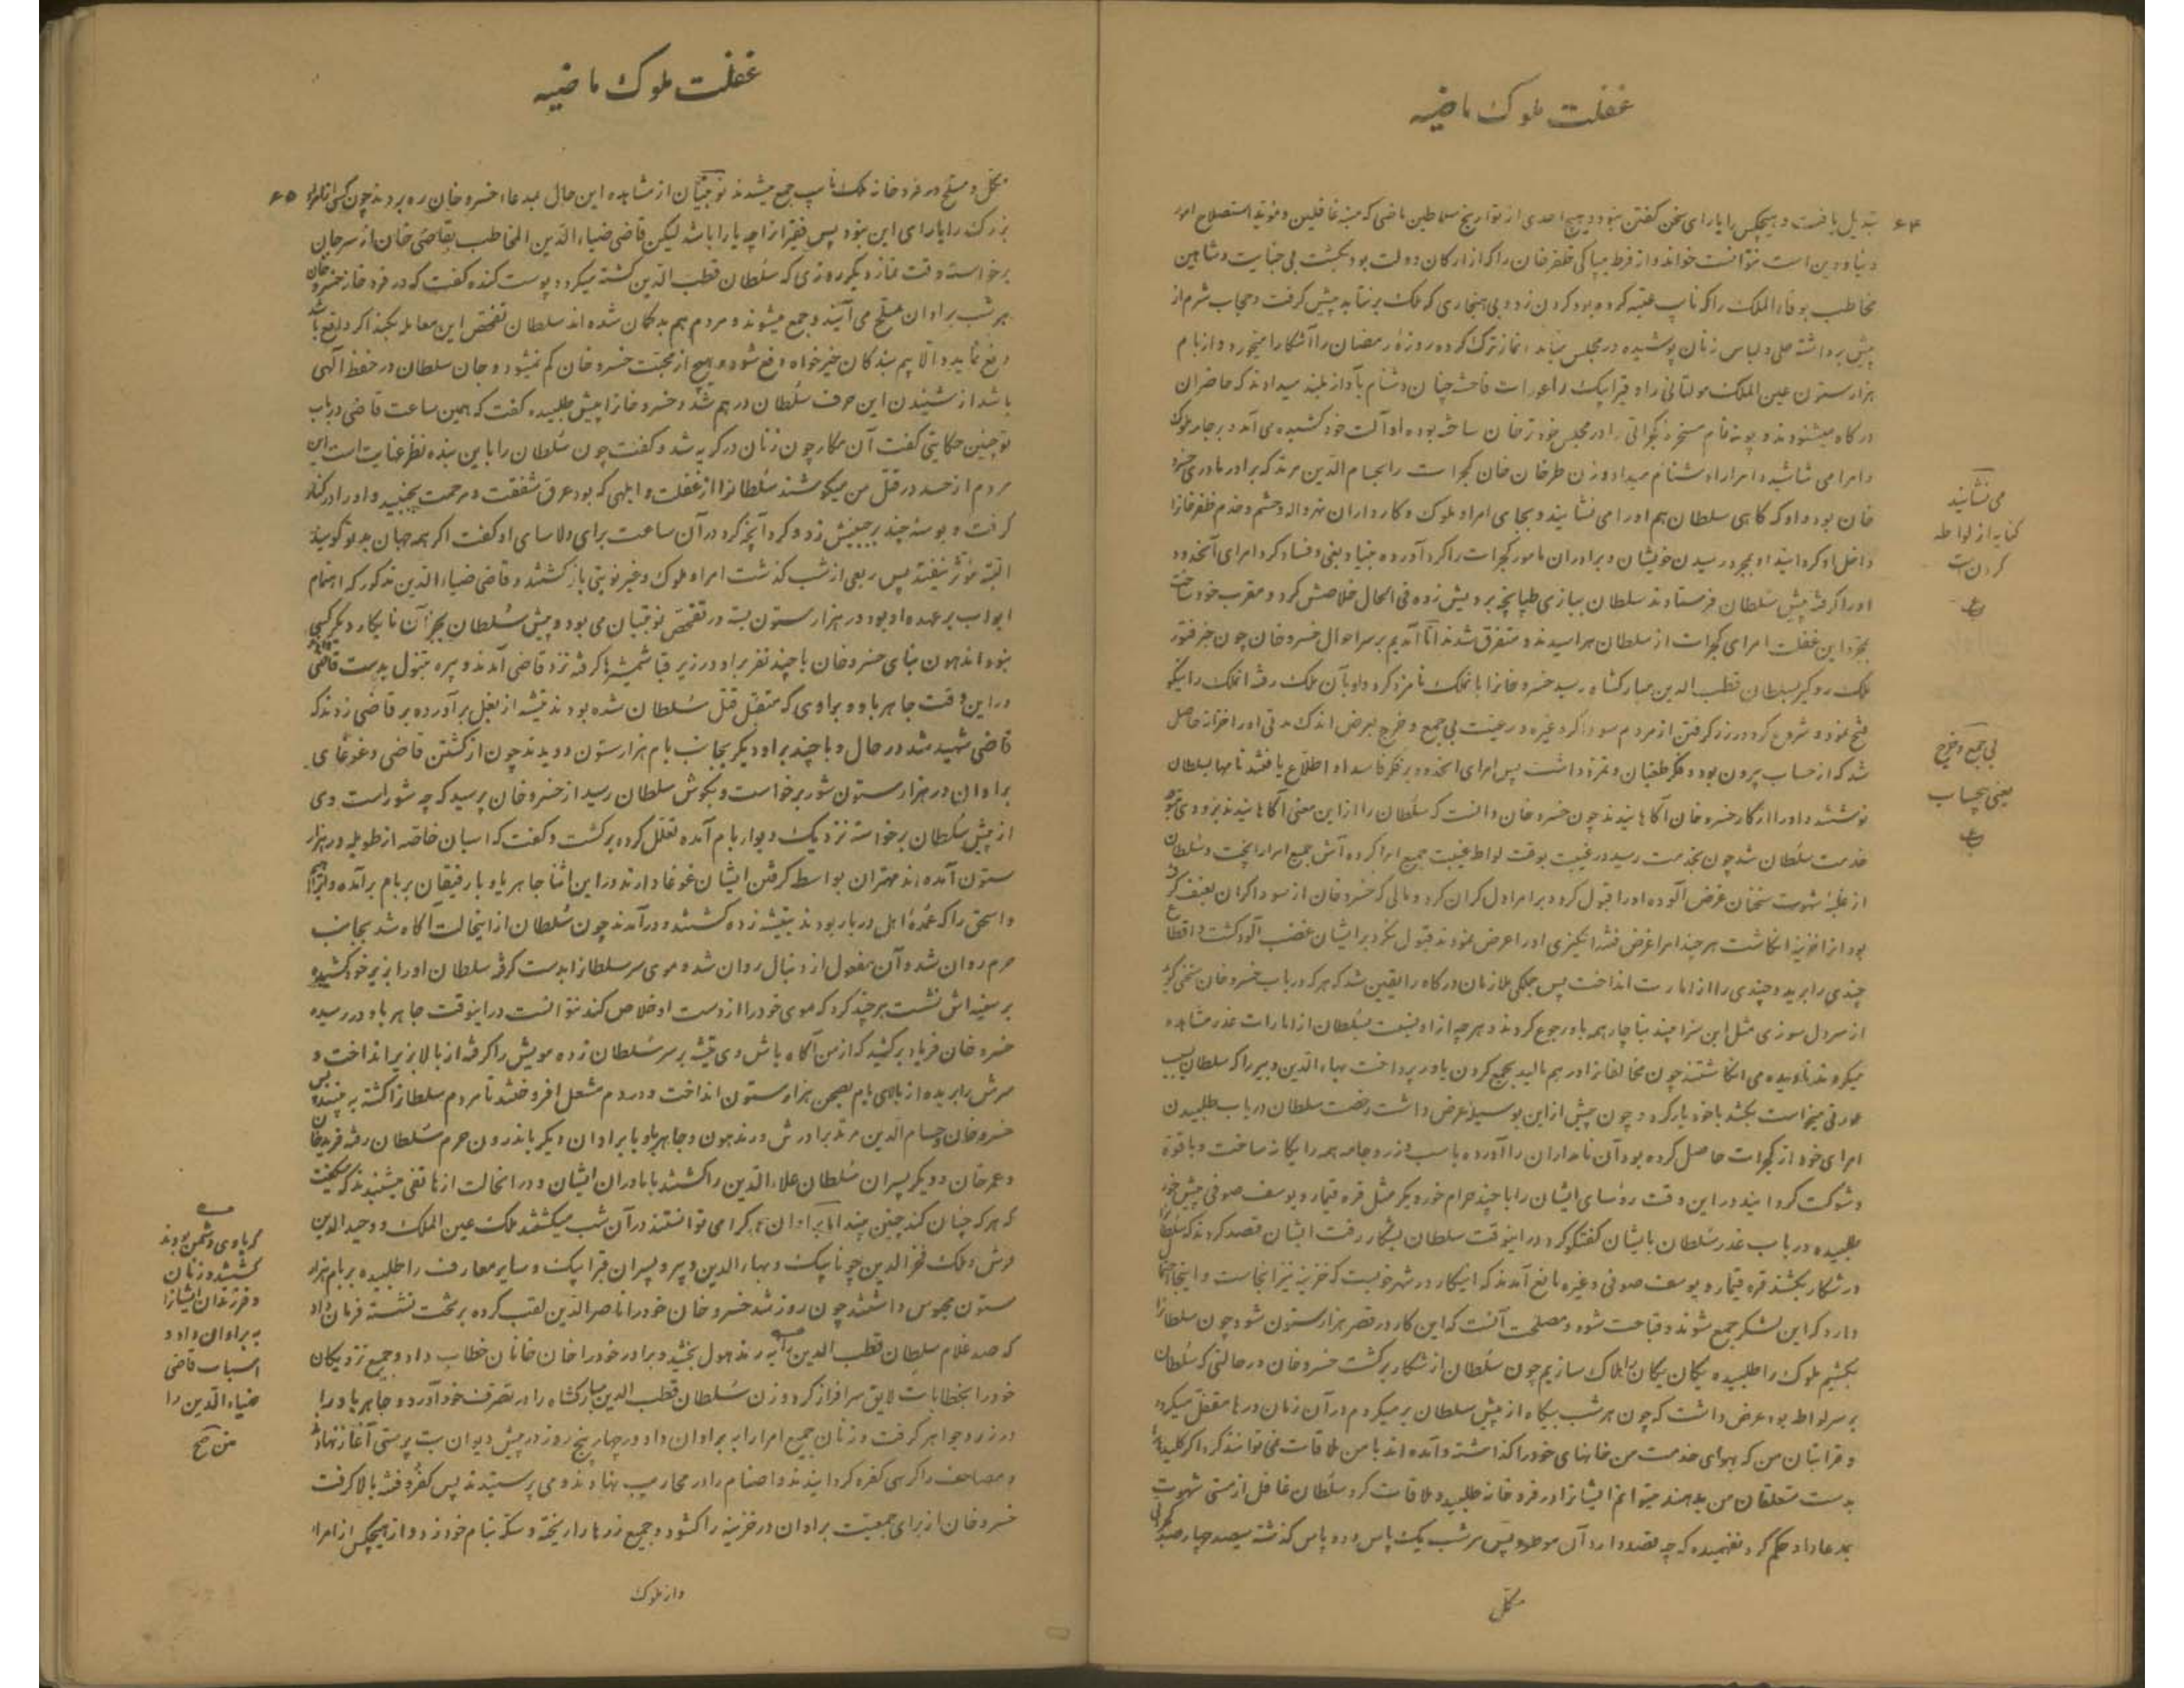 غفلت ملوک ماضیه
۶۴
تبدیل یافت و هیچکس را یارای سخن گفتن نبود و هیچ احدی از تواریخ سلاطین ماضی که منبه غافلین و موید استصلاح امور
دنیا و دین است نتوانست خواند و از فرط بیباکی ظفرخان را که از ارکان دولت بود بکشت بی جنایت و شاهین
مخاطب بوفاء الملک را که نایب عتبه کرده بود کردن زد و بی هنجاری که ملک بر نتابد پیش گرفت و حجاب شرم از
پیش برداشته حلی و لباس زنان پوشیده در مجلس میآمد نماز ترک کرده روزهٔ رمضان را آشکارا میخورد و از بام
هزارستون عین الملک مولتانی را و قرابیک را عورات فاحشه چنان دشنام بآواز بلند میدادند که حاضران
درگاه میشنودند و توبه نام مسخرهٔ گجراتی را در مجلس خود ترخان ساخته بود و او آلت خود کشیده می آمد و بر جامه ملوک
و امرا می شاشید و امرا را دشنام میداد و
خان بود داد که گاهی سلطان هم او را می نشانید و بجای امرا و ملوک و کارداران نهرواله و حشم و خدم ظفرخانرا
داخل او گردانید او بمجرد رسیدن خویشان و برادران نامور گجرات را گرد آورده بنیاد بغی و فساد کرد امرای آنحدود
او را گرفته پیش سلطان فرستادند سلطان ببازی طپانچه برویش زده فی الحال خلاصش کرد و مقرب خود ساخت
بمجرد این غفلت امرای گجرات از سلطان هراسیدند و متفرق شدند آمدیم بر سر احوال خسروخان چون خبر فتور
ملک دوگیر بسلطان قطب الدین مبارکشاه رسید خسروخانرا بانملک نامزد کرد و او بآن ملک رفته انملک را نیکو
فتح نمود و شروع کرد در زر گرفتن از مردم سوداگر و غیره و رعیت بی جمع و خرج بعرض اندک مدتی او را خزانه حاصل
شد که از حساب بیرون بود و فکر طغیان و تمرد داشت پس امرای انحدود بر فکر فاسد او اطلاع یافتند نامها بسلطان
نوشتند و او را از کار خسروخان آگاهانیدند چون خسروخان دانست که سلطان را از این معنی آگاهانیدند بزودی متوجه
خدمت سلطان شد چون بخدمت رسید در غیبت بوقت لواط غیبت جمیع امرا کرده آش جمیع امرا را پخت و سلطان
از غلبهٔ شهوت سخنان غرض آلوده او را قبول کرد و بر امرا دل گران کرد و مالی که خسروخان از سوداگران بعنف گرفته
بود انرا خزینه انکاشت هر چند امرا غرض فتنه انگیزی او را عرض نمودند قبول نکرد بر ایشان غضب آلود گشت و اقطاع
چندی را برید و چندی را از امارت انداخت پس جملگی ملازمان درگاه را یقین شد که هر که در باب خسروخان سخنی گوید
از سر دل سوزی مثل این سزا بیند بناچار همه باو رجوع کردند و هر چه از او نسبت بسلطان از امارات غدر مشاهده
میکردند نادیده می انکاشتند چون مخالفانرا در هم مالید بجمع کردن یاور پرداخت بهاء الدین دبیر را که سلطان بسبب
عورتی میخواست بکشد با خود یار کرد و چون پیش از این بوسیلهٔ عرض داشت رخصت سلطان در باب طلبیدن
امرای خود از گجرات حاصل کرده بود آن نامداران را آورده باسب و زر و جامه همه را یگانه ساخت و با قوة
و شوکت گردانید در این وقت رؤسای ایشان را با چند حرام خور دیگر مثل قره قیمار و یوسف صوفی پیش خود
طلبیده در باب غدر سلطان بایشان گفتگو کرد در اینوقت سلطان بشکار رفت ایشان قصد کردند که سلطان را
در شکار بکشند قره قیمار و یوسف صوفی و غیره مانع آمدند که اینکار در شهر خوبست که خزینه نیز انجاست و اینجا احتمال
دارد که این لشکر جمع شوند و قباحت شود و مصلحت آنست که این کار در قصر هزارستون شود چون سلطانرا
بکشیم ملوک را طلبیده یکان یکان را هلاک سازیم چون سلطان از شکار برگشت خسروخان در حالتی که سلطان
بر سر لواط بود عرض داشت که چون هر شب بیگاه از پیش سلطان بر میگردم در آن زمان درها مقفل میگردد
و قرابتان من که بهوای خدمت من خانهای خود را گذاشته و آمده اند با من ملاقات نمی توانند کرد اگر کلیدها
بدست متعلقان من بدهند میتوانم ایشانرا در فرودخانه طلبید و ملاقات کرد سلطان غافل از مستی شهوت
بمدعا داد حکم کرد و نفهمیده که چه قصد دارد آن موطوء پس هر شب یک پاس و دو پاس گذشته سیصد چهارصد گجراتی
مکمل
می نشانید
کنایه از لواطه
کردن است
بی جمع و خرج
یعنی بیحساب
غفلت ملوک ماضیه
۶۵
مکمل و مسلح در فرودخانه ملک نایب جمع میشدند نوبتیان از مشاهده این حال بمدعاء خسروخان ره بردند چون کسی از امراء
بزرگ را یارای این نبود پس فقیر انرا چه یارا باشد لیکن قاضی ضیاء الدین المخاطب بقاضی خان از سر جان
برخاسته وقت نماز دیگر روزی که سلطان قطب الدین کشته میگردد پوست کنده گفت که در فرودخانه خسروخان
هر شب براوان مسلح می آیند و جمع میشوند و مردم هم بدگمان شده اند سلطان تفحص این معامله بکند اگر واقع باشد
دفع نماید والا بیم بندگان خیرخواه دفع شود و هیچ از محبت خسروخان کم نمیشود و جان سلطان در حفظ آلهی
باشد از شنیدن این حرف سلطان در هم شد و خسروخانرا پیش طلبیده گفت که همین ساعت قاضی در باب
تو چنین حکایتی گفت آن مکار چون زنان در گریه شد و گفت چون سلطان را باین بنده نظر عنایت است این
مردم از حسد در قتل من میکوشند سلطانرا از غفلت و ابلهی که بود عرق شفقت و مرحمت بجنبید و او را در کنار
گرفت و بوسه چند بر جبینش زد و کرد آنچه کرد در آن ساعت برای دلاسای او گفت اگر همه جهان بد تو گویند
البته مؤثر نیفتد پس ربعی از شب گذشت امرا و ملوک و غیر نوبتی باز گشتند و قاضی ضیاء الدین مذکور که اهتمام
ابواب بر عهده او بود در هزارستون بسته در تفحص نوبتیان می بود و پیش سلطان بجز آن نابکار دیگر کسی
نبود مندهون نیای خسروخان با چند نفر براو در زیر قبا شمشیرها گرفته نزد قاضی آمدند و بیره تنبول بدست قاضی
در این وقت جاهربا و براوی که متقبل قتل سلطان شده بودند تیشه از بغل بر آورده بر قاضی زدند که
قاضی شهید شد در حال و با چند براو دیگر بجانب بام هزارستون دویدند چون از کشتن قاضی و غوغای
براوان در هزارستون شور برخاست و بگوش سلطان رسید از خسروخان پرسید که چه شور است وی
از پیش سلطان برخاسته نزدیک دیوار بام آمده تعلل کرده برگشت و گفت که اسبان خاصه از طویله در هزار
ستون آمده اند مهتران بواسطه گرفتن ایشان غوغا دارند در این اثنا جاهربا با رفیقان بر بام بر آمده و ابراهیم
و اسحق را که عمدهٔ اهل دربار بودند بتیشه زده کشتند و درآمدند چون سلطان از اینحالت آگاه شد بجانب
حرم روان شد و آن مفعول از دنبال روان شد و موی سر سلطانرا بدست گرفته سلطان او را بزیر خود کشیده
بر سینه اش نشست هر چند کرد که موی خود را از دست او خلاص کند نتوانست در اینوقت جاهربا در رسیده
خسروخان فریاد برکشید که از من آگاه باش وی تیشه بر سر سلطان زده مویش را گرفته از بالا بزیر انداخت و
سرش را بریده از بالای بام بصحن هزارستون انداخت و در دم مشعل افروختند تا مردم سلطانرا کشته به بینند پس
خسروخان و حسام الدین مرتد برادرش و مندهون و جاهربا با براوان دیگر باندرون حرم سلطان رفته فریدخان
و عمرخان و دیگر پسران سلطان علاء الدین را کشتند با مادران ایشان و در انحالت از هاتفی میشنیدند که میگفت
که هر که چنان کند چنین بیند اما براوان هر کرا می توانستند در آن شب میکشتند ملک عین الملک و وحید الدین
قرش و ملک فخر الدین جونا بیک و بهاء الدین دبیر و پسران قرابیک و سایر معارف را طلبیده بر بام هزار
ستون محبوس داشتند چون روز شد خسروخان خود را ناصر الدین لقب کرده بر تخت نشسته فرمان داد
که صد غلام سلطان قطب الدین را بمندهول بخشید و برادر خود را خان خانان خطاب داد و جمیع نزدیکان
خود را بخطابات لایق سرافراز کرد و زن سلطان قطب الدین مبارکشاه را در تصرف خود آورد و جاهربا را
در زر و جواهر گرفت و زنان جمیع امرا را به براوان داد و در چهار پنج روز در پیش دیوان بت پرستی آغاز نهاد
و مصاحف را کرسی کفره گردانیدند و اصنام را در محاریب بنهادند و می پرستیدند پس کفر و فتنه بالا گرفت
خسروخان از برای جمعیت براوان در خزینه را گشود و جمیع زرها را ریخته و سکه بنام خود زد و از هیچکس از امراء
و از ملوک
که باوی دشمن بودند
کشتند و زنان
و فرزندان ایشانرا
به براوان داد و
اسباب قاضی
ضیاء الدین را
من صح